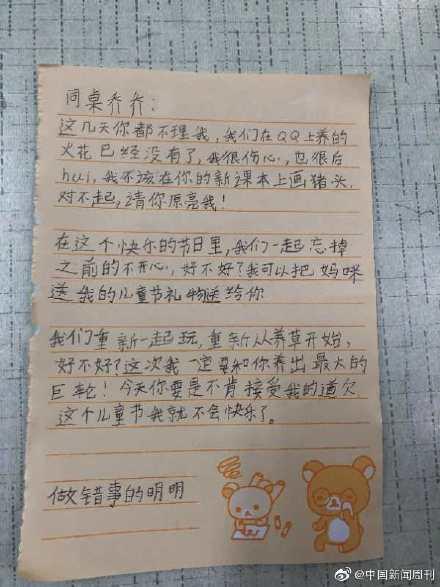 同桌乔乔：
这几天你都不理我，我们在QQ上养的
火花已经没有了，我很伤心，也很后
hui，我不该在你的新课本上画猪头，
对不起，请你原亮我！
在这个快乐的节日里，我们一起忘掉
之前的不开心，好不好？我可以把妈咪
送我的儿童节礼物送给你
我们重新一起玩，重新从养草开始，
好不好？这次我一定要和你养出最大的
巨轮！今天你要是不肯接受我的道欠，
这个儿童节我就不会快乐了。
做错事的明明
@中国新闻周刊